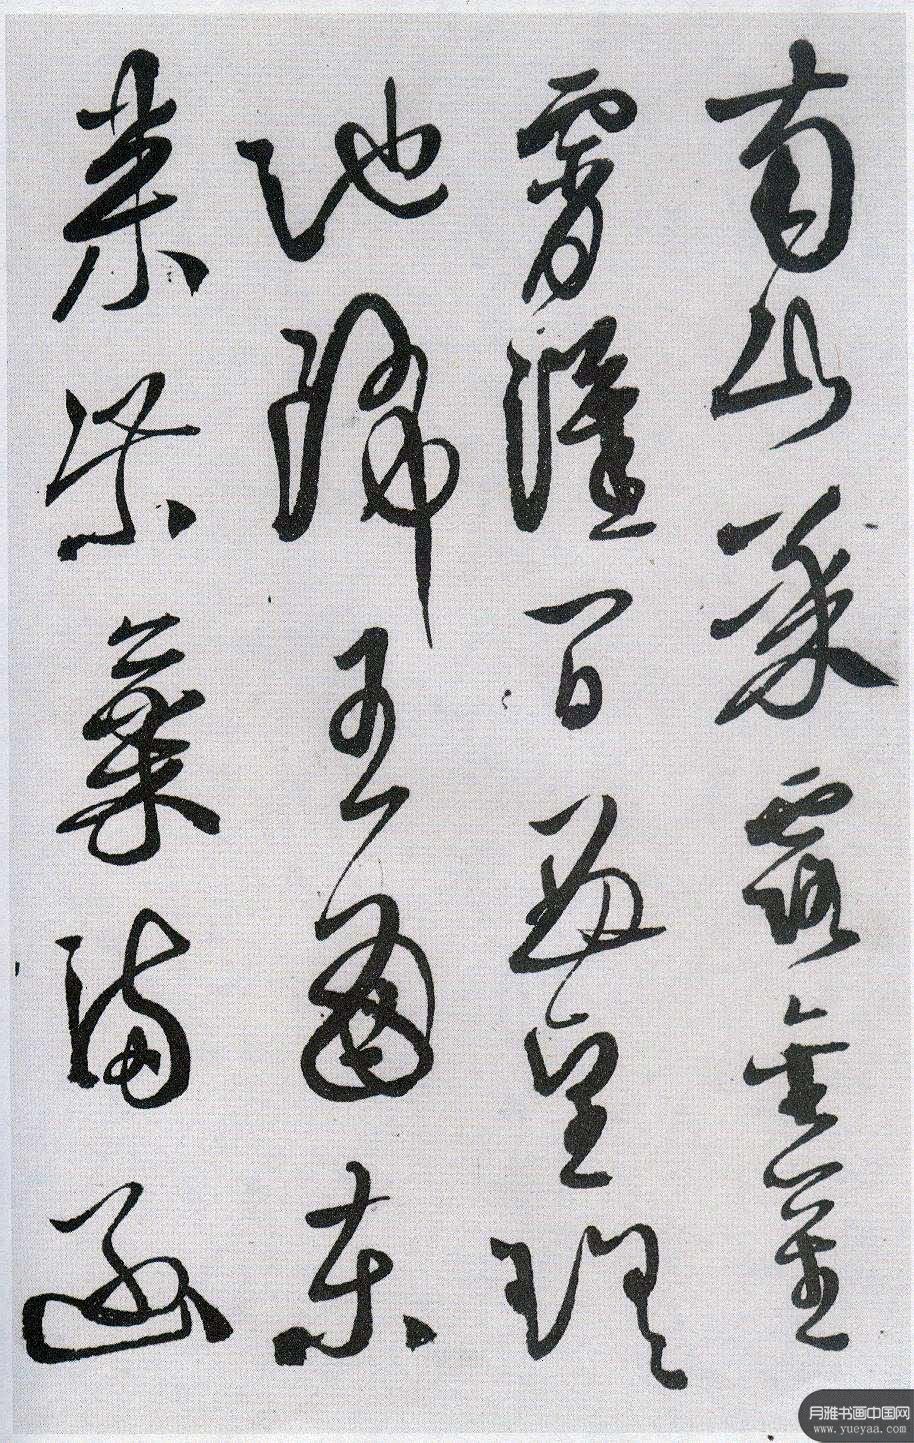 南山承露金莖
霄漢間西望瑤
池降王母東
來紫氣滿函
月雅书画中国网
www.yueyaa.com